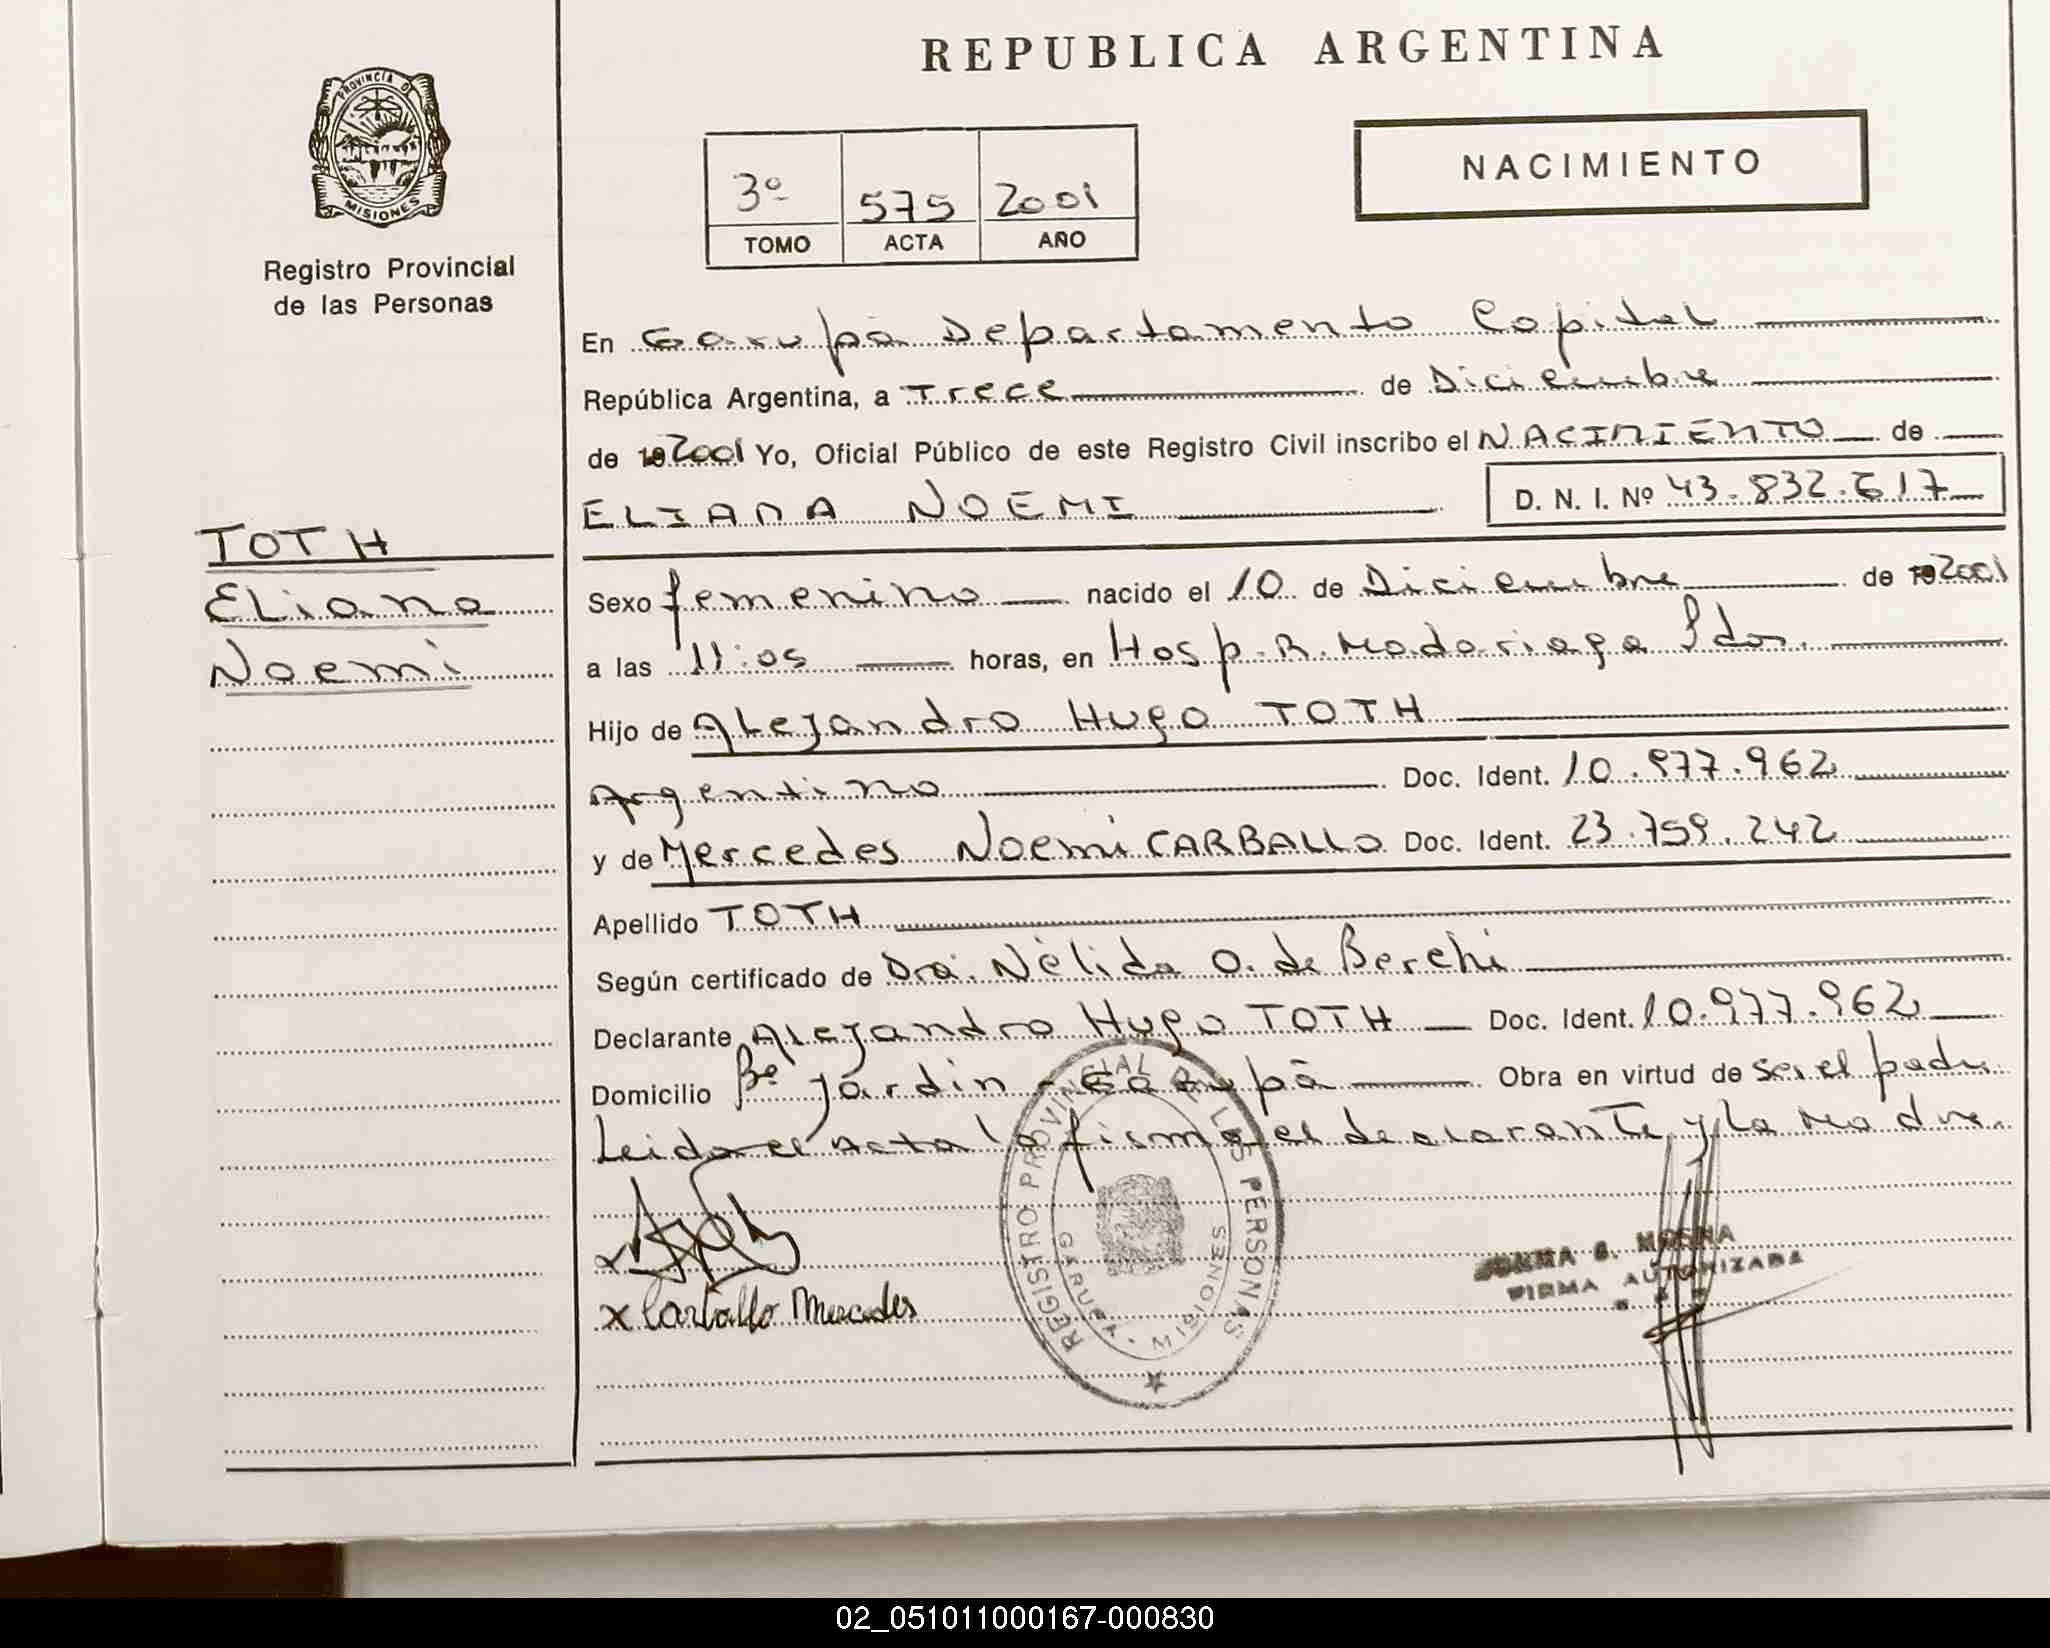 REPUBLICA ARGENTINA
PROVINCIA DE MISIONES
Registro Provincial
de las Personas
NACIMIENTO
3º 575 2001
TOMO ACTA AÑO
En Garupá Departamento Capital
República Argentina, a Trece de Diciembre
de 192001 Yo, Oficial Público de este Registro Civil inscribo el NACIMIENTO de
ELIANA NOEMI D. N. I. Nº 43.832.617
TOTH
Eliana
Noemi
Sexo femenino nacido el 10 de Diciembre de 192001
a las 11:05 horas, en Hosp. R. Madariaga Pdas.
Hijo de Alejandro Hugo TOTH
Argentino Doc. Ident. 10.977.962
y de Mercedes Noemi CARBALLO Doc. Ident. 23.759.242
Apellido TOTH
Según certificado de Dra. Nélida O. de Berchi
Declarante Alejandro Hugo TOTH Doc. Ident. 10.977.962
Domicilio Bº Jardin - Garupá Obra en virtud de ser el padre
Leida el acta la firma el declarante y la Madre.
x Carballo Mercedes
REGISTRO PROVINCIAL DE LAS PERSONAS
GARUPA - MISIONES
FIRMA AUTORIZADA
02_051011000167-000830